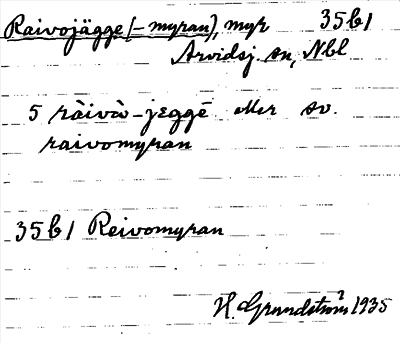 Raivojägge (-myran), myr 35b1
Arvidsj. sn, Nbl
5 ràivò-jeggē eller sv.
raivomyran
35b1 Reivomyran
H. Grundström 1935